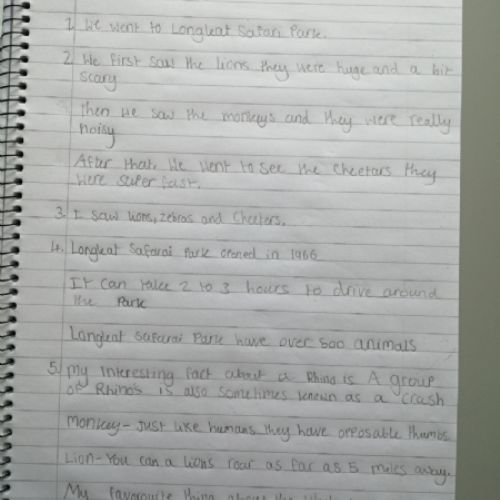 1. We went to Longleat Safari Park.
2. We first saw the lions they were huge and a bit
scary
Then we saw the monkeys and they were really
noisy
After that, We went to see the cheetars they
were super fast.
3. I saw lions, zebras and cheeters.
4. Longleat Safarai Park opened in 1966
It can take 2 to 3 hours to drive around
the Park
Longleat Safarai Park have over 500 animals
5. My interesting fact about a Rhino is A group
of Rhinos is also sometimes known as a crash
Monkey- Just like humans they have opposable thumbs
Lion-You can a lions roar as far as 5 miles away.
My favourite thing about the